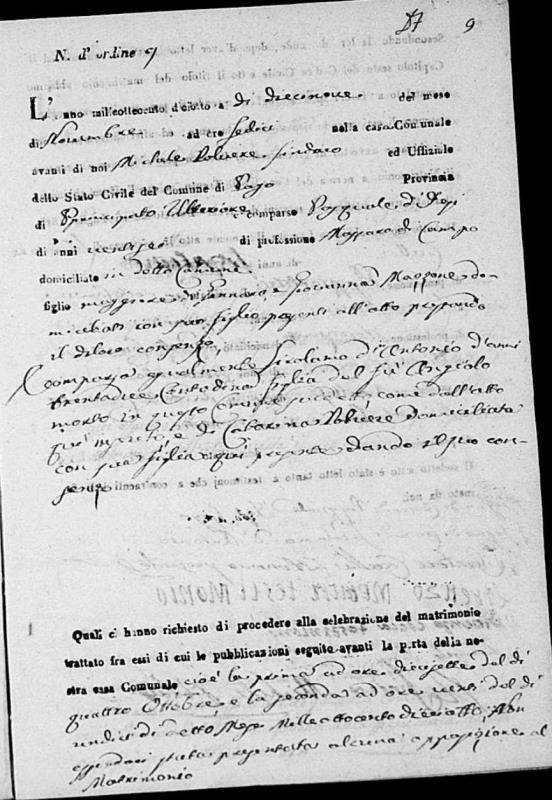 9
N. d'ordine 9
L'anno milleottocento diciotto a di diecinove del mese
di Novembre ad ore sedici nella casa Comunale
avanti di noi Michele Polvere Sindaco ed Uffiziale
dello Stato Civile del Comune di Pago Provincia
di Principato Ulteriore è comparso Pasquale di
di anni ventisei di professione di Campo
domiciliato in detto Comune
figlio maggiore di Gennaro e Giovanna do-
miciliati con suo figlio presenti all'atto prestando
il di loro consenso
Comparsa egualmente Sicolania di Antonio d'anni
trentadue Contadina figlia del fu Angiolo
morto in questo Comune come dall'atto
qui e di Catarina Polvere domiciliata
con sua figlia qui presente dando il suo con-
senso
Quali ci hanno richiesto di procedere alla celebrazione del matrimonio
trattato fra essi di cui le pubblicazioni seguite avanti la porta della no-
stra casa Comunale cioè la prima ad ore diecisette del di
quattro Ottobre e la seconda ad ore venti del di
undici di detto Mese Milleottocento diciotto, Non
essendosi stata presentata alcuna opposizione al
Matrimonio